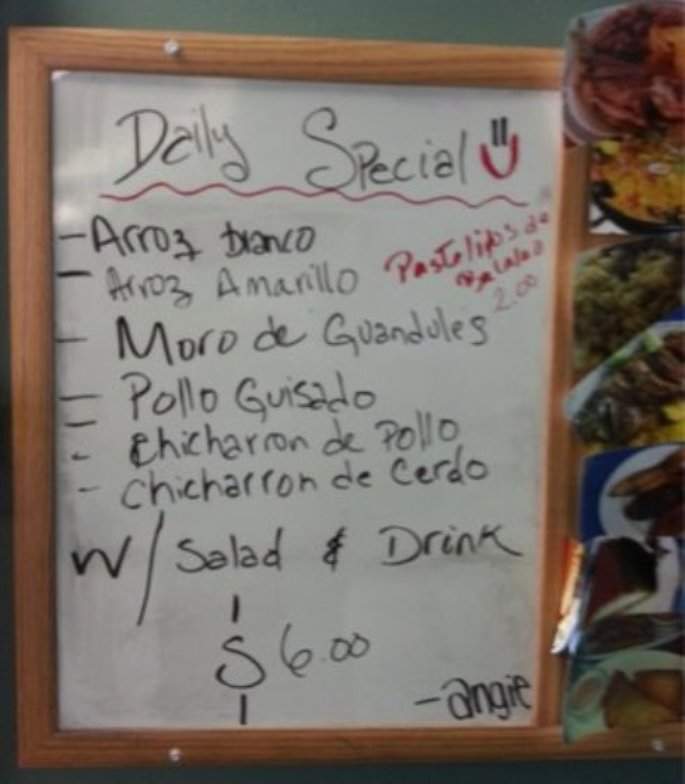 Daily Special
- Arroz blanco
- Arroz Amarillo
Pastelitos de
2.00
- Moro de Guandules
- Pollo Guisado
- Chicharron de Pollo
- Chicharron de Cerdo
W/ Salad & Drink
$6.00
- angie